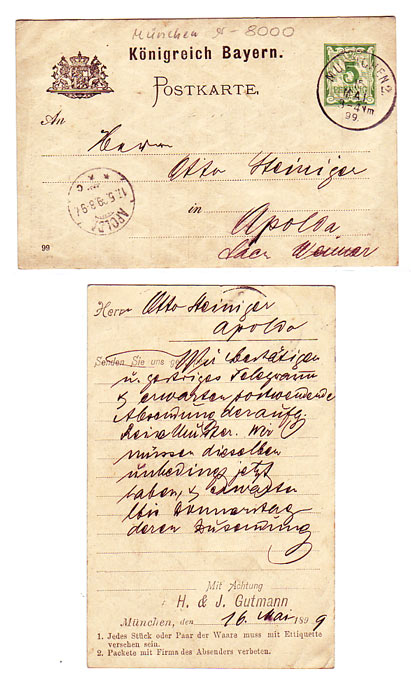 München A - 8000
Königreich Bayern.
POSTKARTE.
MÜNCHEN 2
MAI
99
5
An
Herrn
Otto Steiniger
in
Apolda
Sach Weimar
APOLDA
17.5.99
99
Herrn Otto Steiniger
Apolda
Senden Sie uns Wir bestätigen
u. gestriges Telegramm
& erwarten postwendende
Absendung der aufg.
Reise Muster. Wir
müssen dieselben
unbedingt jetzt
haben, & erwarten
bis Donnerstag
deren Zusendung
Mit Achtung
H. & J. Gutmann
München, den 16. Mai 1899
1. Jedes Stück oder Paar der Waare muss mit Ettiquette
versehen sein.
2. Packete mit Firma des Absenders verbeten.